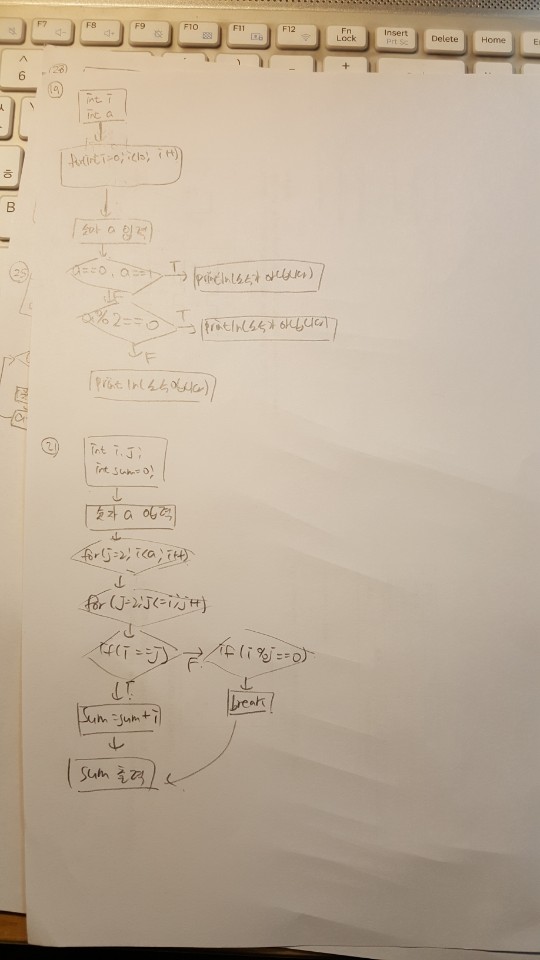 F7
F8
F9
F10
F11
F12
Fn Lock
Insert
Prt Sc
Delete
Home
^
6
+
B
(28)
19
int i
int a
for(int i=0; i<10; i++)
숫자 a 입력
a==0, a==1
T
println(소수가 아닙니다)
F
a%2==0
T
println(소수가 아닙니다)
F
println(소수입니다)
25
21
int i, j;
int sum=0;
숫자 a 입력
for(j=2; i<a; i++)
for (j=2; j<=i; j++)
if(i==j)
F
if(i%j==0)
T
break;
sum=sum+i
sum 출력